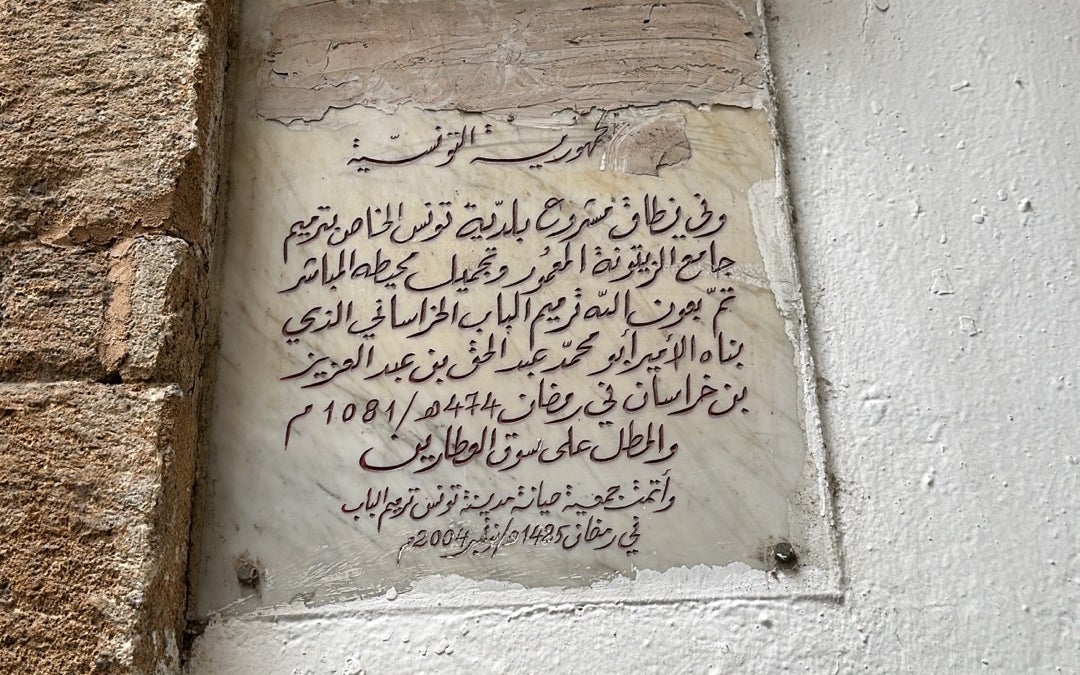 الجمهورية التونسيّة
وفي نطاق مشروع بلديّة تونس الخاص بترميم
جامع الزيتونة المعمور وتجميل محيطه المباشر
تمّ بعون الله ترميم الباب الخراساني الذي
بناه الأمير أبو محمّد عبد الحق بن عبد العزيز
بن خراسان في رمضان 474هـ/1081م
والمطل على سوق العطارين
وأتمت جمعية صيانة مدينة تونس ترميم الباب
في رمضان 1425هـ/نوفمبر 2004م